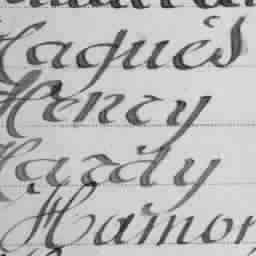 Hagués
Henry
Hardy
Hamon